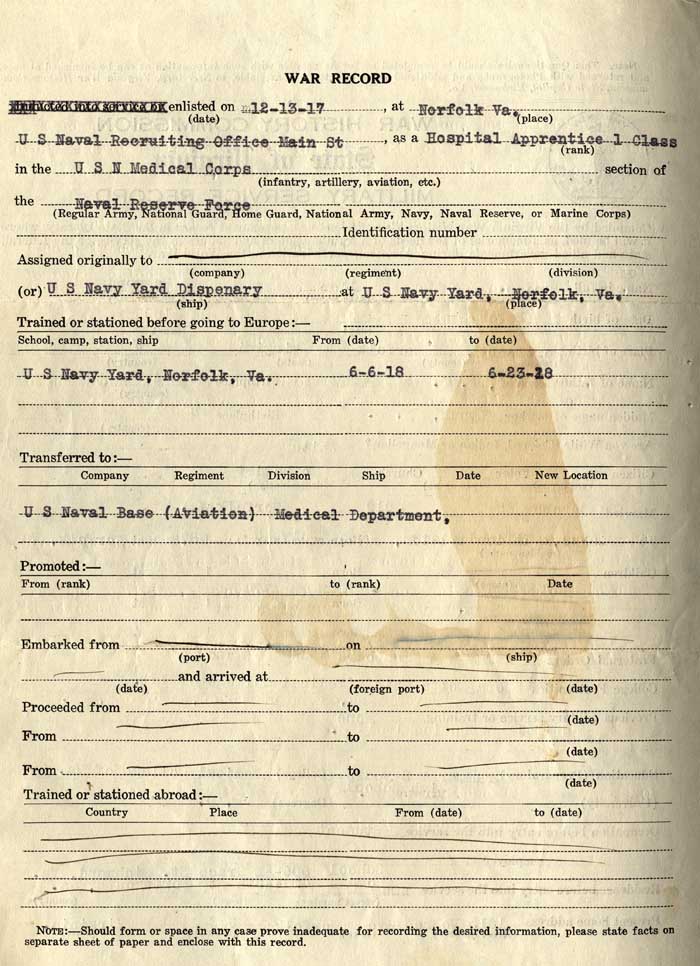 WAR RECORD
Inducted into service or enlisted on 12-13-17, at Norfolk Va.
(date) (place)
U S Naval Recruiting Office Main St, as a Hospital Apprentice 1 Class
(rank)
in the U S N Medical Corps section of
(infantry, artillery, aviation, etc.)
the Naval Reserve Force
(Regular Army, National Guard, Home Guard, National Army, Navy, Naval Reserve, or Marine Corps)
Identification number
Assigned originally to
(company) (regiment) (division)
(or) U S Navy Yard Dispenary at U S Navy Yard, Norfolk, Va.
(ship) (place)
Trained or stationed before going to Europe:—
School, camp, station, ship From (date) to (date)
U S Navy Yard, Norfolk, Va. 6-6-18 6-23-18
Transferred to:—
Company Regiment Division Ship Date New Location
U S Naval Base (Aviation) Medical Department,
Promoted:—
From (rank) to (rank) Date
Embarked from on
(port) (ship)
and arrived at
(date) (foreign port) (date)
Proceeded from to
(date)
From to
(date)
From to
(date)
Trained or stationed abroad:—
Country Place From (date) to (date)
NOTE:—Should form or space in any case prove inadequate for recording the desired information, please state facts on
separate sheet of paper and enclose with this record.